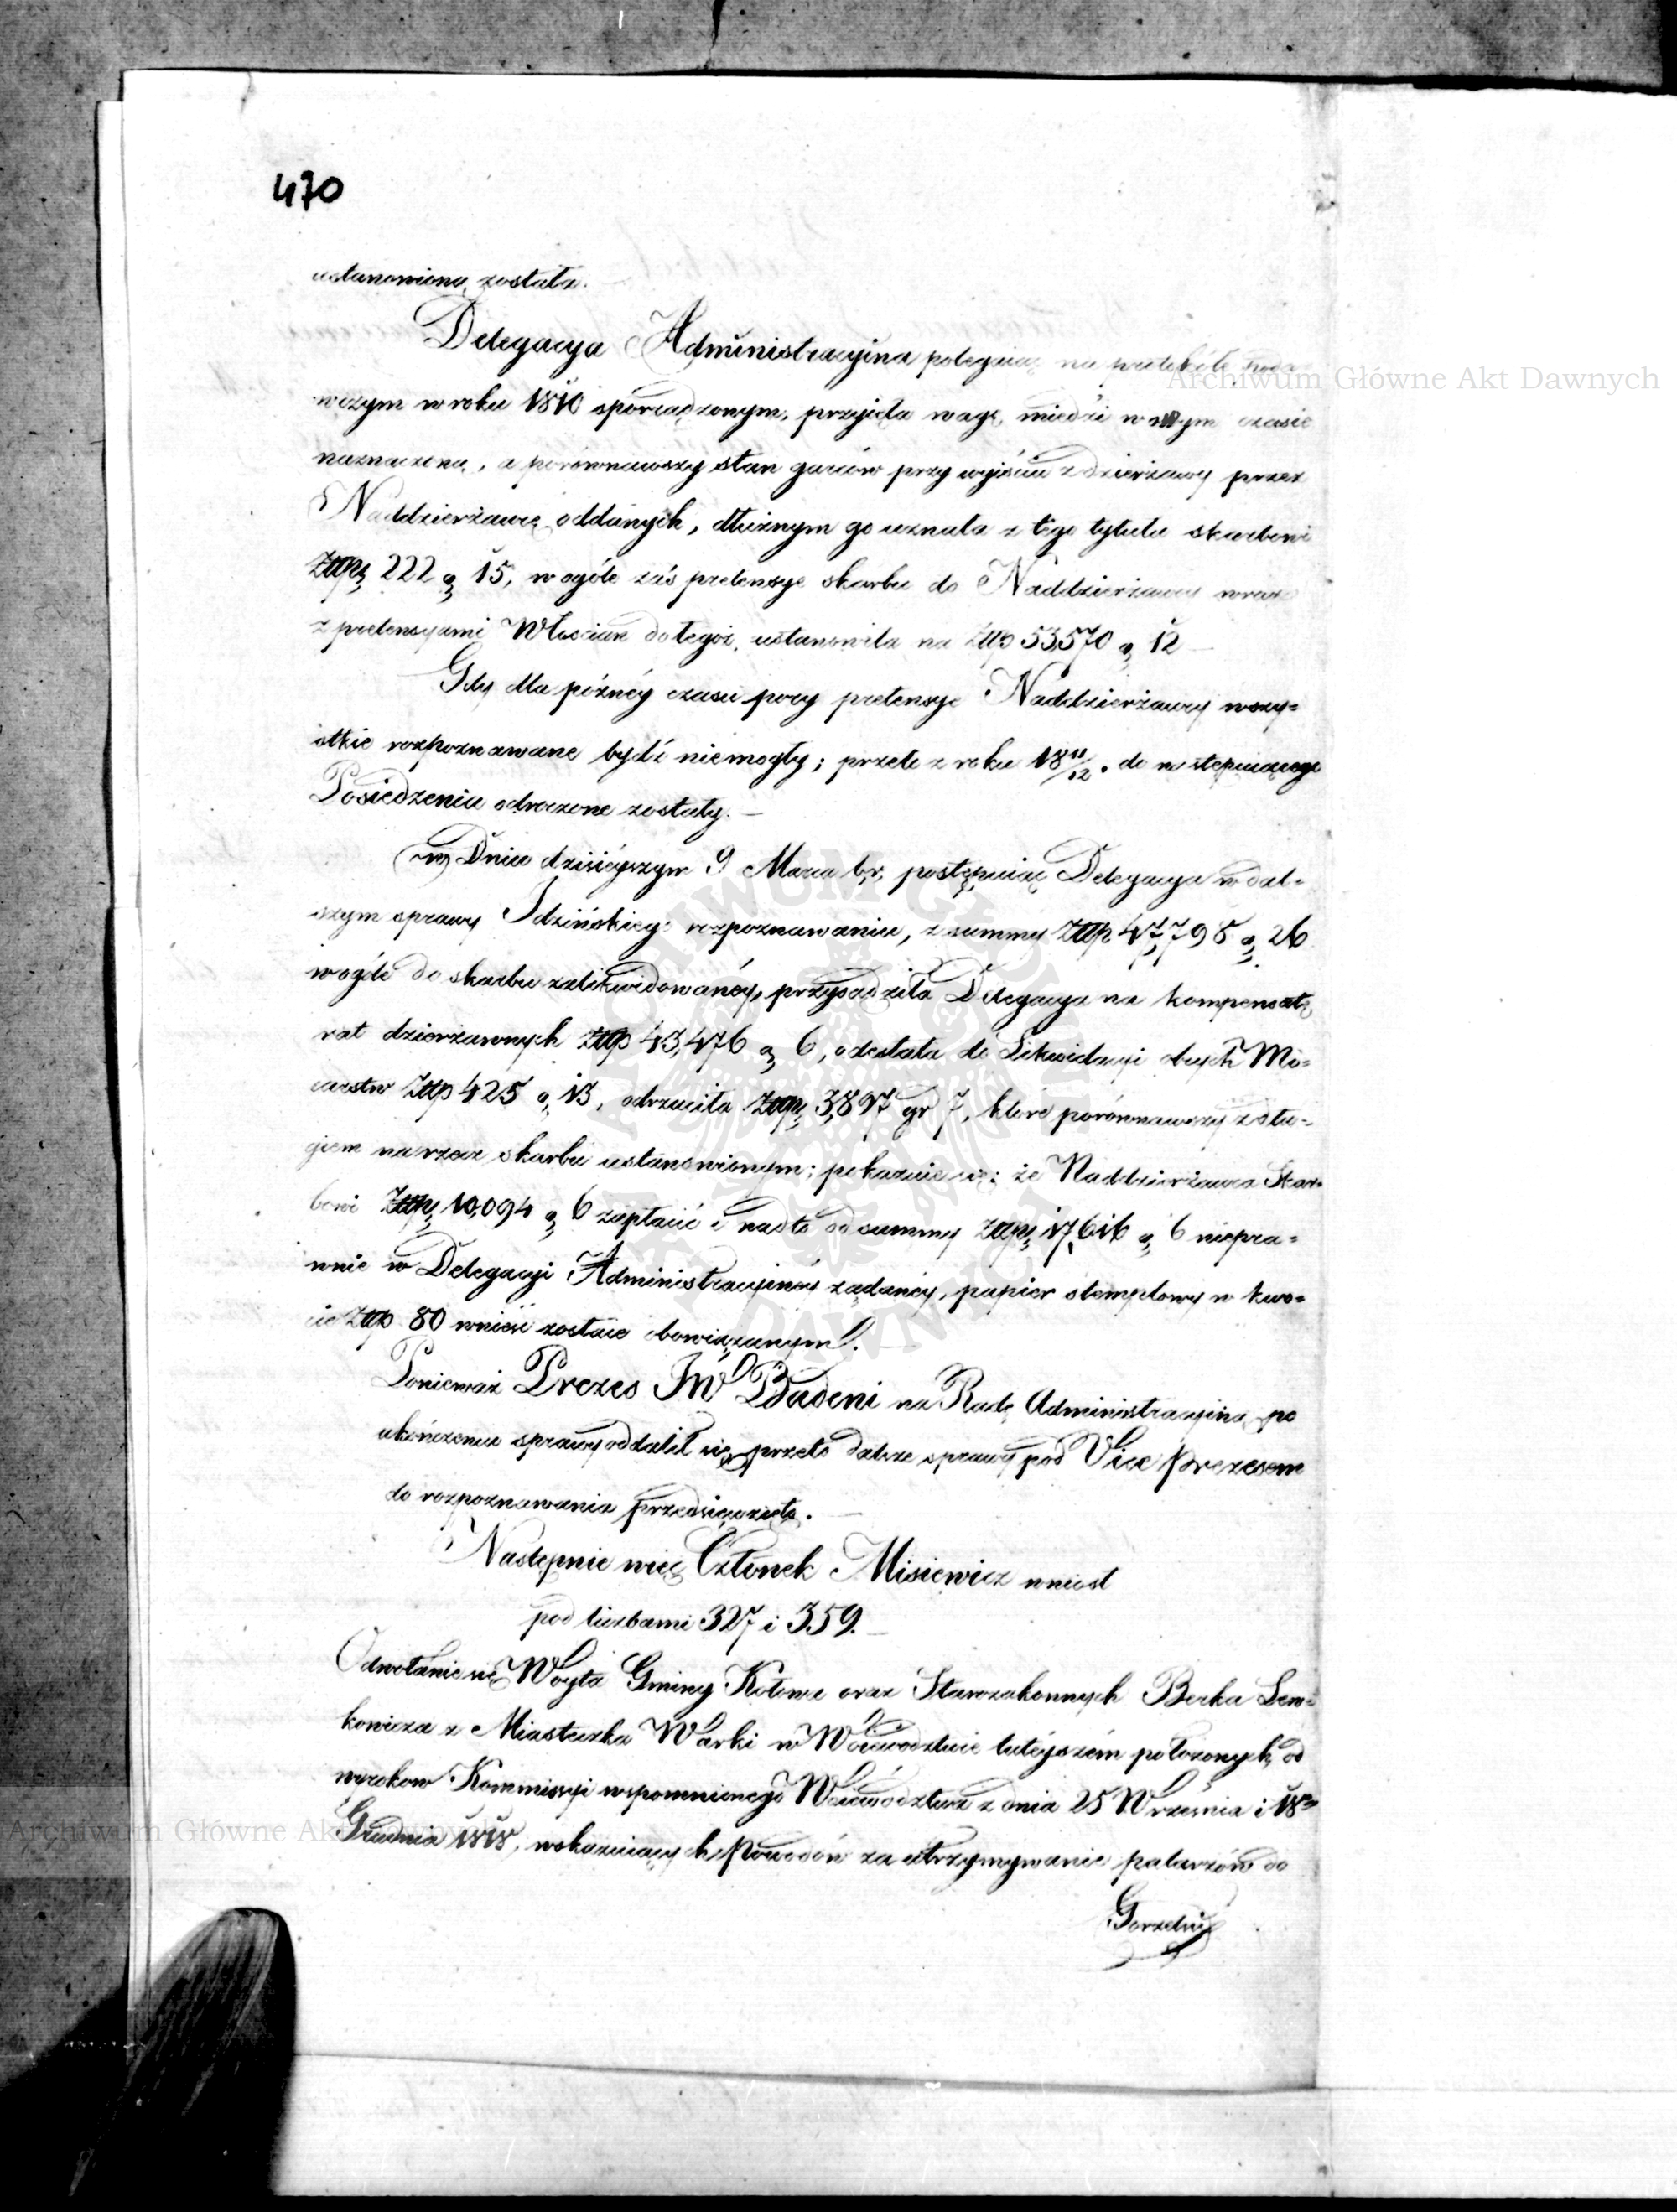 470
ustanowioną została.
Delegacya Administracyina polegaiąc na protokole
wczym w roku 1810 sporządzonym, przyięła wagę miedzi w czasie
naznaczoną, a porównawszy stan garców przy wyjściu z dzierżawy przez
Naddzierżawcę oddanych, dłużnym go uznała z tego tytułu skarbowi
Złp 222 g 15, w ogóle zaś pretensye skarbu do Naddzierżawcy wraz
z pretensyami Włościan do tegoż, ustanowiła na złp 53,570 g 12
Gdy dla późnéy czasu pory pretensye Naddzierżawcy wszy-
stkie rozpoznawane bydź niemogły; przeto z roku 18 11/12. do następuiącego
Posiedzenia odroczone zostały. —
W Dniu dzisiéyszym 9 Marca b.r. postępuiąc Delegacya w dal-
szym sprawy Idzińskiego rozpoznawaniu, z summy złp 47,798 g 26
w ogóle do skarbu zalikwidowanéy, przysądziła Delegacya na kompensatę
rat dzierżawnych złp 43,476 g 6, odesłała do Likwidacyi obcych Mo-
carstw złp 425 g 13, odrzuciła złp 3,897 gr 7, które porównawszy z dłu-
giem na rzecz skarbu ustanowionym; pokazuie się: że Naddzierżawca Skar-
bowi Złp 10,094 g 6 zapłacić i nadto od summy złp 17,616 g 6 niepra-
wnie w Delegacyi Administracyinéy żądanéy, papier stemplowy w kwo-
cie złp 80 wnieść zostaie obowiązanym.
Ponieważ Prezes JW Badeni na Radę Administracyiną po
ukończeniu sprawy oddalił się, przeto dalsze sprawy pod Vice Prezesem
do rozpoznawania przedsięwzięto. —
Następnie więc Członek Misiewicz wniosł
pod liczbami 327 i 359. —
Odwołanie się Wóyta Gminy oraz Starozakonnych Berka Lew-
kowicza z Miasteczka Warki w Wóiewodztwie tutéyszém położonych, od
wyrokow Kommissyi wspomnionego Wóiewództwa z dnia 25 Września i 18
Grudnia 1818, wskazuiących Powodów za utrzymywanie palarzów do
Gorzelni
Archiwum Główne Akt Dawnych
Archiwum Główne Akt Dawnych